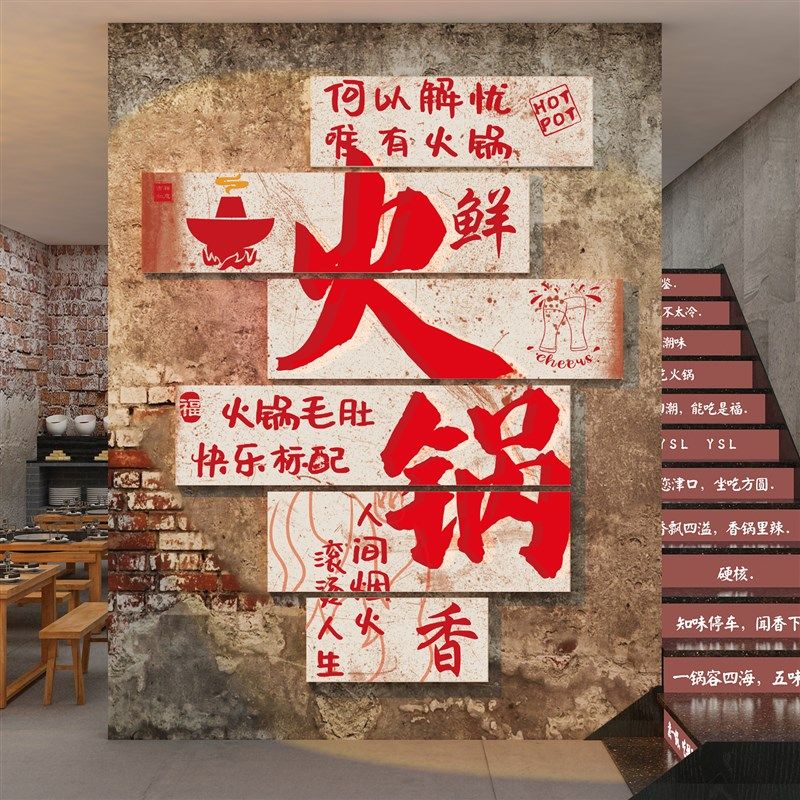 何以解忧
唯有火锅
HOT
POT
火
鲜
cheers
福
火锅毛肚
快乐标配
锅
人间烟火
滚烫人生
香
鉴.
不太冷.
潮味
火锅
潮，能吃是福.
YSL YSL
恋津口，坐吃方圆.
香飘四溢，香锅里辣.
硬核.
知味停车，闻香下
一锅容四海，五味